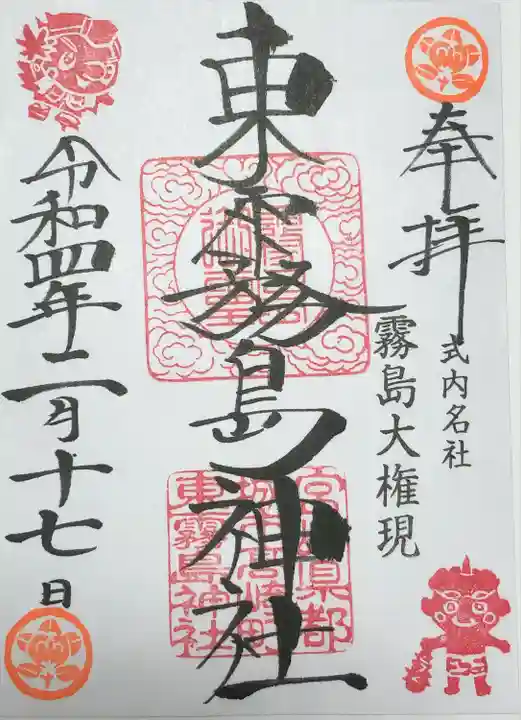 奉拝
式内名社
霧島大権現
東霧島神社
宮崎県都
城市高崎町
東霧島神社
令和四年二月十七日